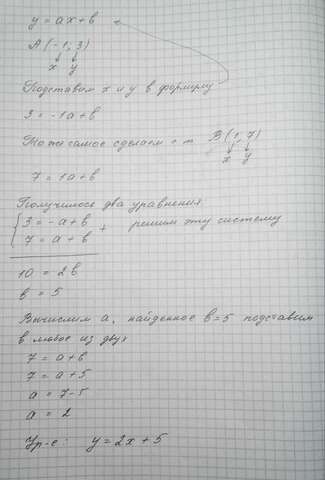 y = ax + b
A (-1; 3)
x y
Подставим x и y в формулу
3 = -1a + b
То же самое сделаем с т. B (1; 7)
x y
7 = 1a + b
Получилось два уравнения
3 = -a + b
7 = a + b + решим эту систему
10 = 2b
b = 5
Вычислим a, найденное b=5 подставим
в любое из двух
7 = a + b
7 = a + 5
a = 7-5
a = 2
Ур-е: y = 2x + 5